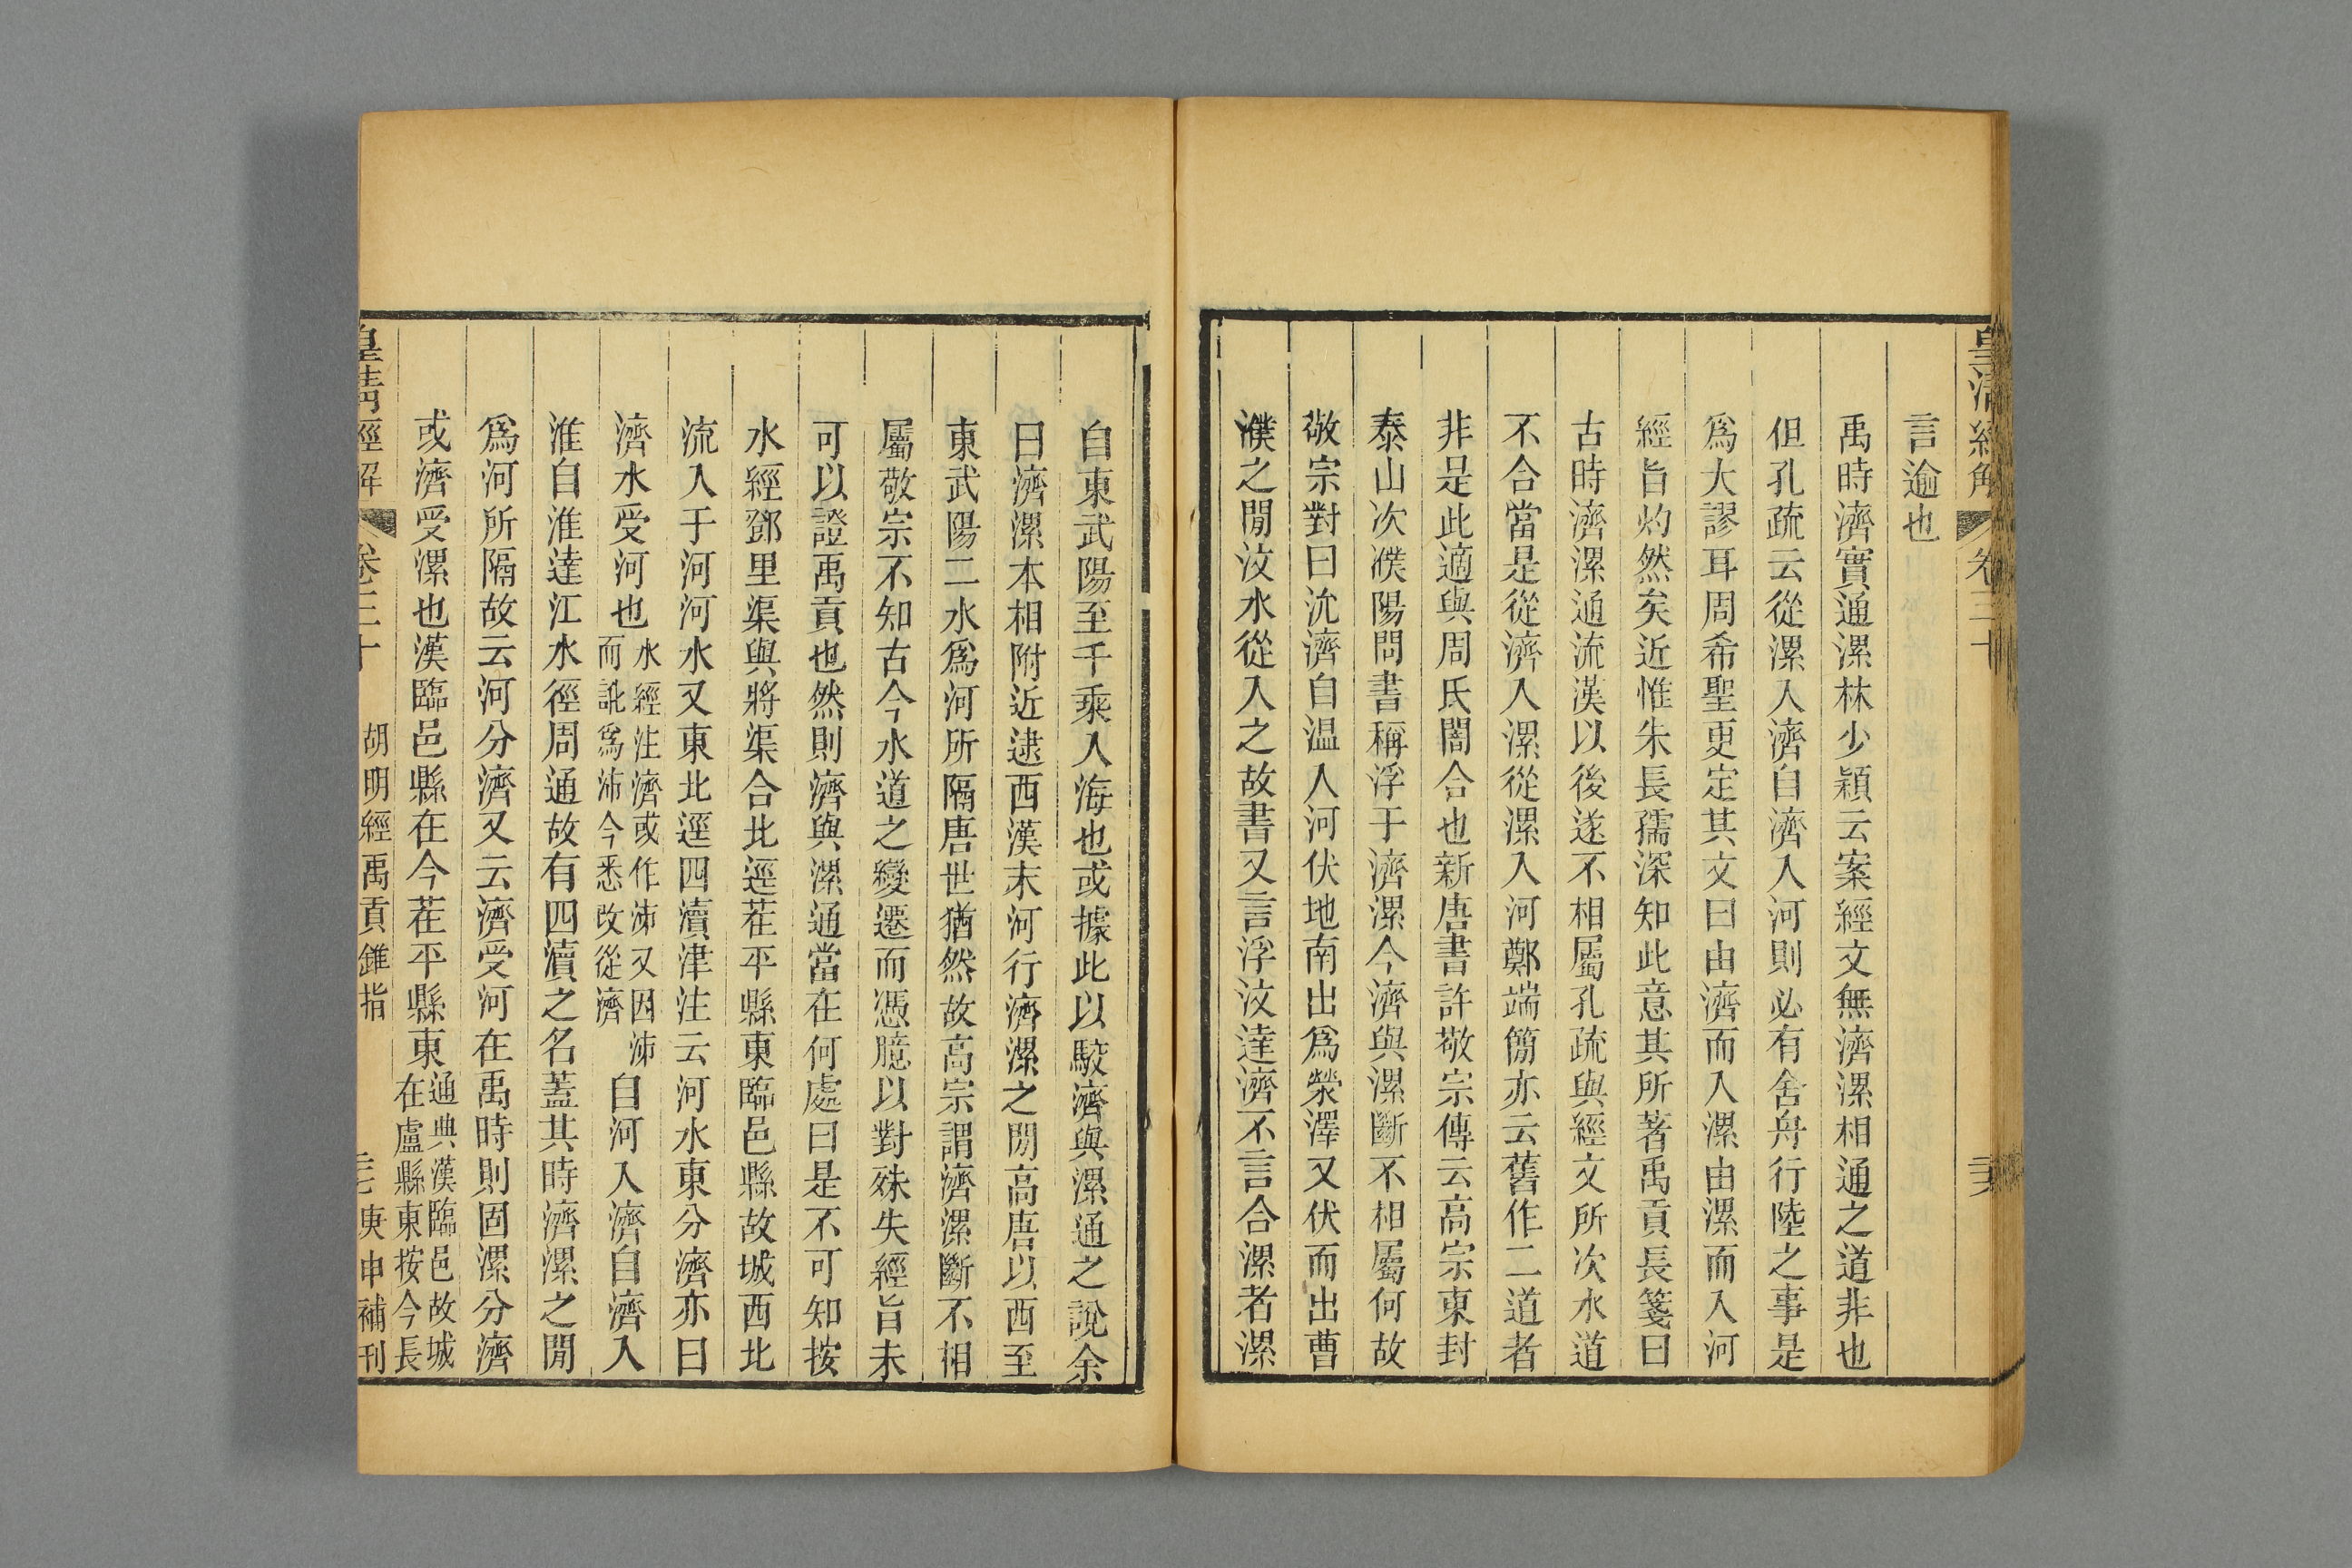 皇清經解 卷三十 二六
言逾也
禹時濟實通漯林少穎云案經文無濟漯相通之道非也
但孔疏云從漯入濟自濟入河則必有舍舟行陸之事是
爲大謬耳周希聖更定其文曰由濟而入漯由漯而入河
經旨灼然矣近惟朱長孺深知此意其所著禹貢長箋曰
古時濟漯通流漢以後遂不相屬孔疏與經文所次水道
不合當是從濟入漯從漯入河鄭端簡亦云舊作二道者
非是此適與周氏闇合也新唐書許敬宗傳云高宗東封
泰山次濮陽問書稱浮于濟漯今濟與漯斷不相屬何故
敬宗對曰沇濟自温入河伏地南出爲滎澤又伏而出曹
濮之閒汶水從入之故書又言浮汶達濟不言合漯者漯
自東武陽至千乘入海也或據此以駮濟與漯通之說余
曰濟漯本相附近逮西漢末河行濟漯之閒高唐以西至
東武陽二水爲河所隔唐世猶然故高宗謂濟漯斷不相
屬敬宗不知古今水道之變遷而憑臆以對殊失經旨未
可以證禹貢也然則濟與漯通當在何處曰是不可知按
水經鄧里渠與將渠合北逕茌平縣東臨邑縣故城西北
流入于河河水又東北逕四瀆津注云河水東分濟亦曰
濟水受河也水經注濟或作泲又因泲而訛爲沛今悉改從濟自河入濟自濟入
淮自淮達江水徑周通故有四瀆之名蓋其時濟漯之閒
爲河所隔故云河分濟又云濟受河在禹時則固漯分濟
或濟受漯也漢臨邑縣在今茌平縣東通典漢臨邑故城在盧縣東按今長
皇清經解 卷三十 胡明經禹貢錐指 二七 庚申補刊